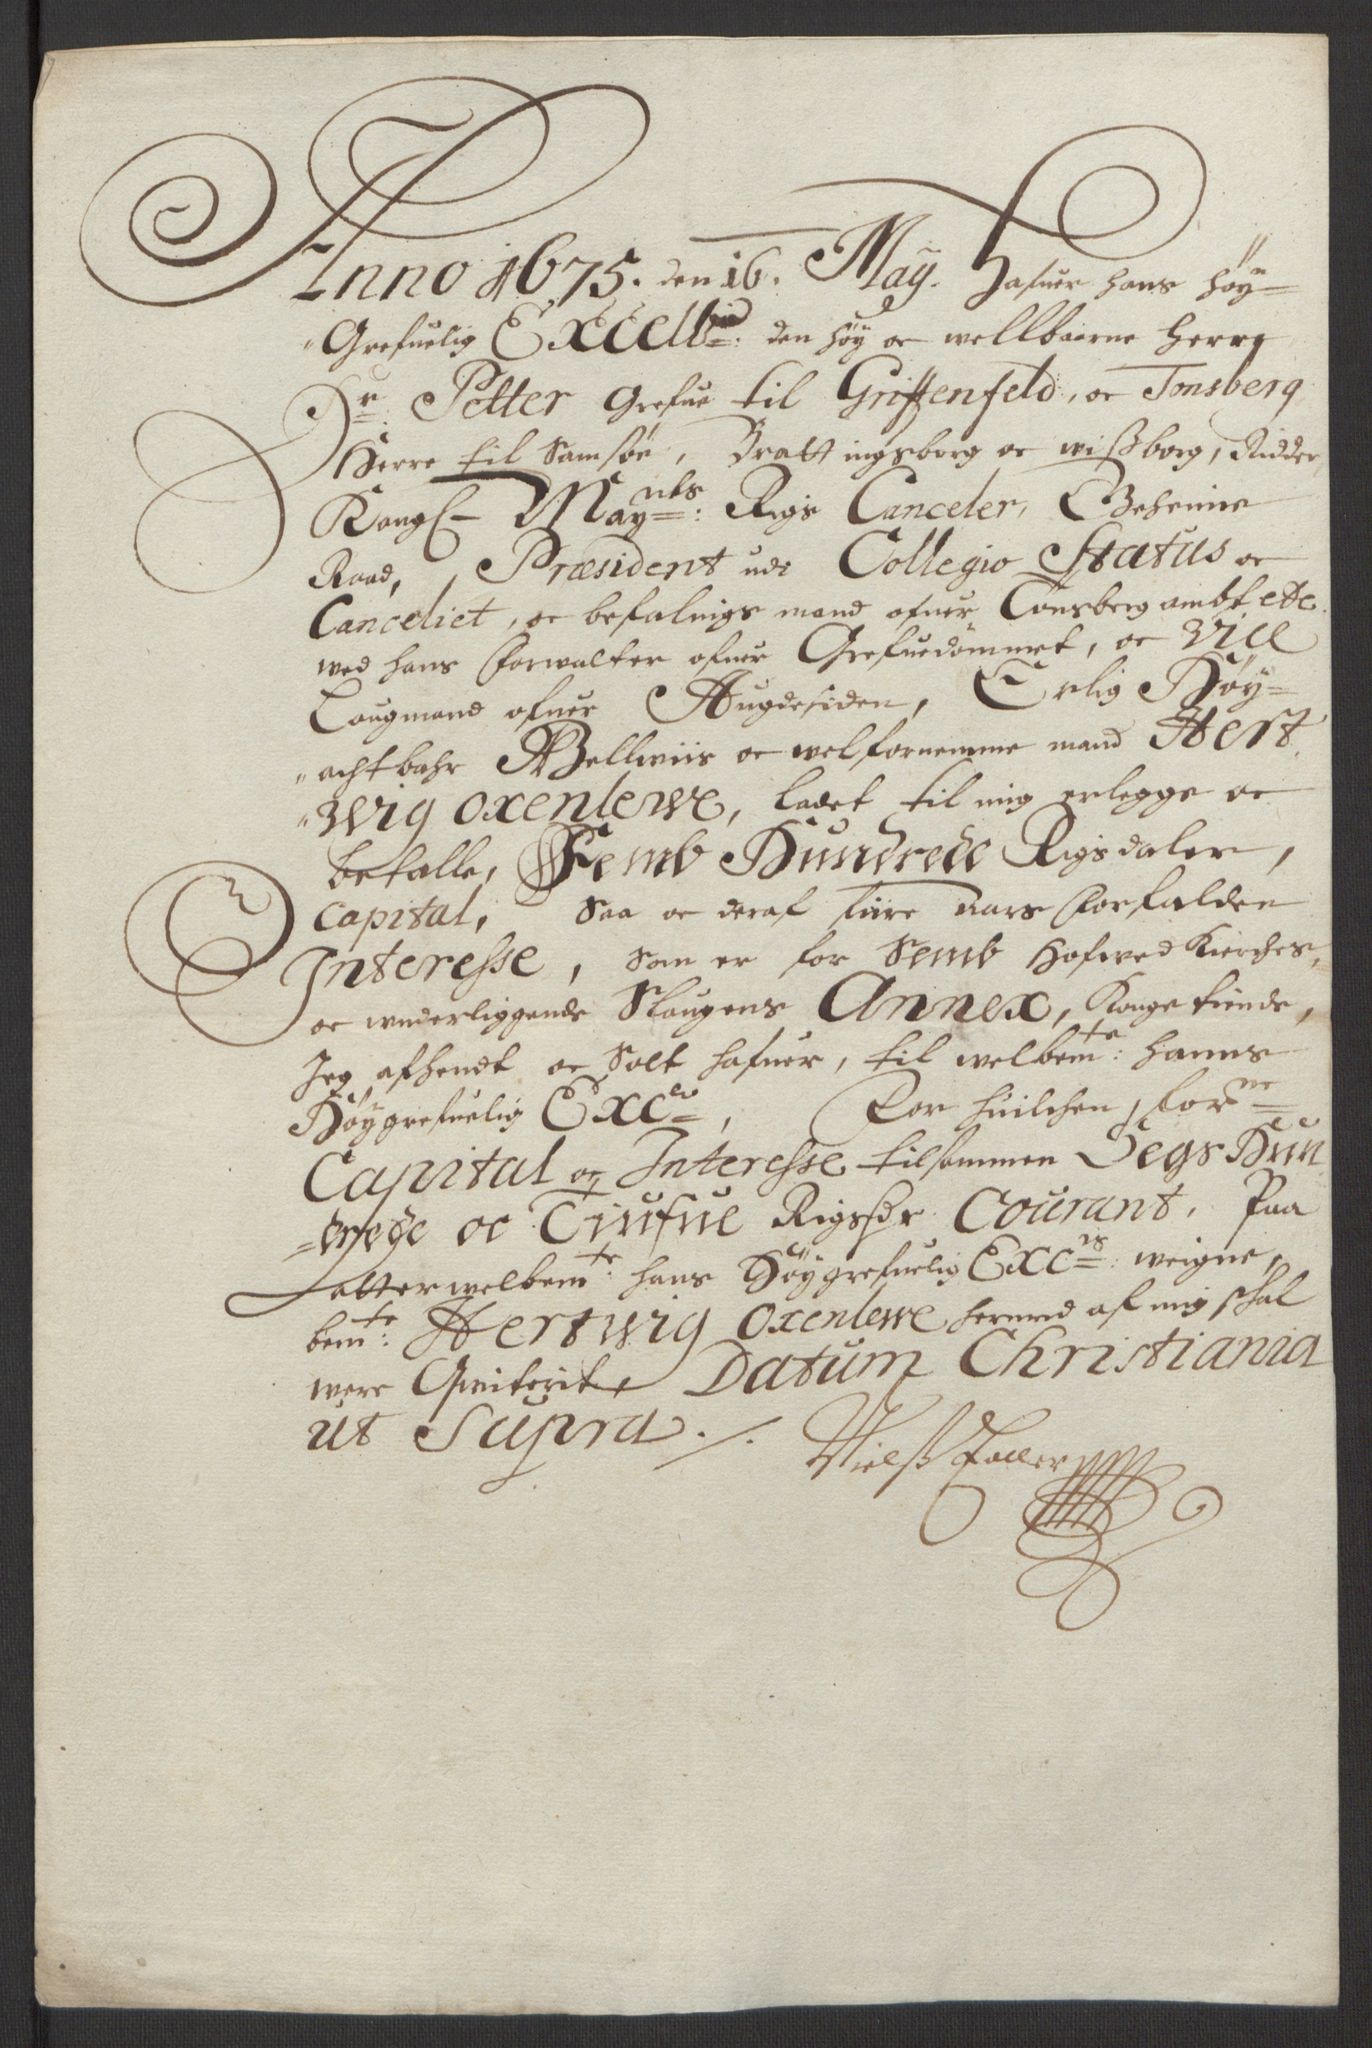 Anno 1675. den 16. May. Hafuer hans Høy=
"Grefuelig Excell: den høy oc wellbaarne Herre
Hr Petter Grefue til Griffenfeld, oc Tonsberg
Herre til Samsøe, Brattingsborg oc wißborg, Ridder,
Kongl Mayts: Rigs Canceler, Geheime
Raad, Præsident udi Collegio Status oc
Canceliet, oc befalings mand ofuer Tønsberg ambt etc.
wed hans forwalter ofuer Grefuedømmet, oc Vice
Laugmand ofuer Augdesiden, Erlig Høy=
"achtbahr Wellwiis oc welfornemme mand Hert
"wig Oxenlewe, ladet til mig erlegge oc
betalle, Femb Hundrede Rigsdaler,
Capital, Saa oc deraf fiire Aars forfalden
Interesse, som er for Semb Hofwed Kierches,
oc underliggende Slaugens Annex, Konge tiende,
Jeg afhendt oc Solt hafuer, til welbemte: Hanns
Høygrefuelig Exce, For huilchen, forne
Capital og Interesse tilsammen Segs Hun
=drede oc Tiufue Rigsdr Courant, Paa
atter welbemte: hans Høygrefuelig Excs: weigne,
bemte: Hertwig Oxenlewe hermed af mig schal
were Qviterit, Datum Christiania
ut Supra.
Nielß Toller